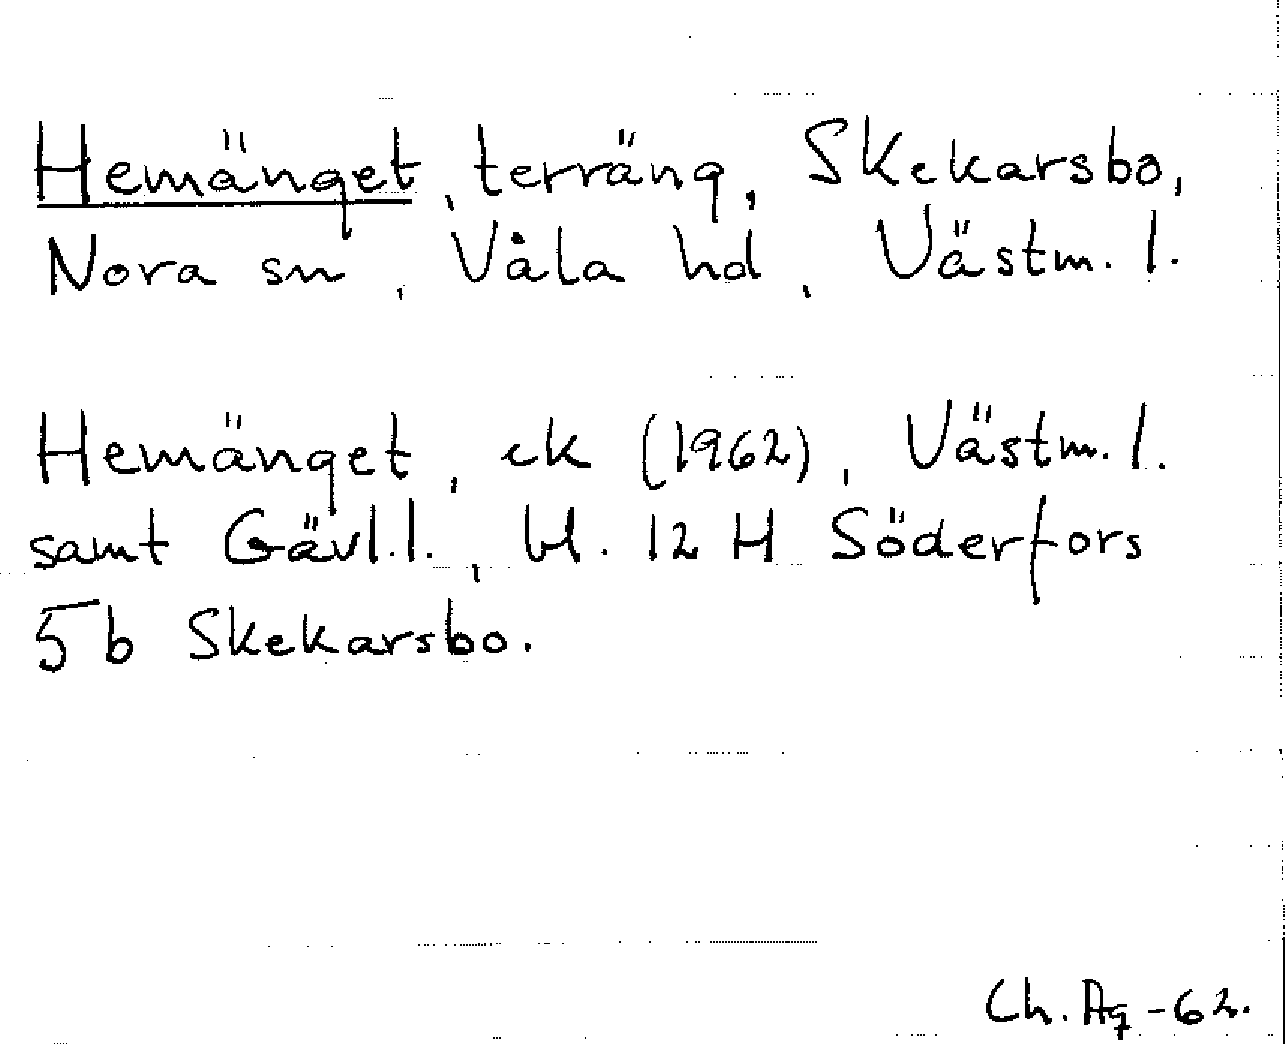 Hemänget, terräng, Skekarsbo,
Nora sn, Våla hd, Västm. l.
Hemänget, ek (1962), Västm. l.
samt Gävl. l., bl. 12 H Söderfors
5b Skekarsbo.
Ch. Ag -62.